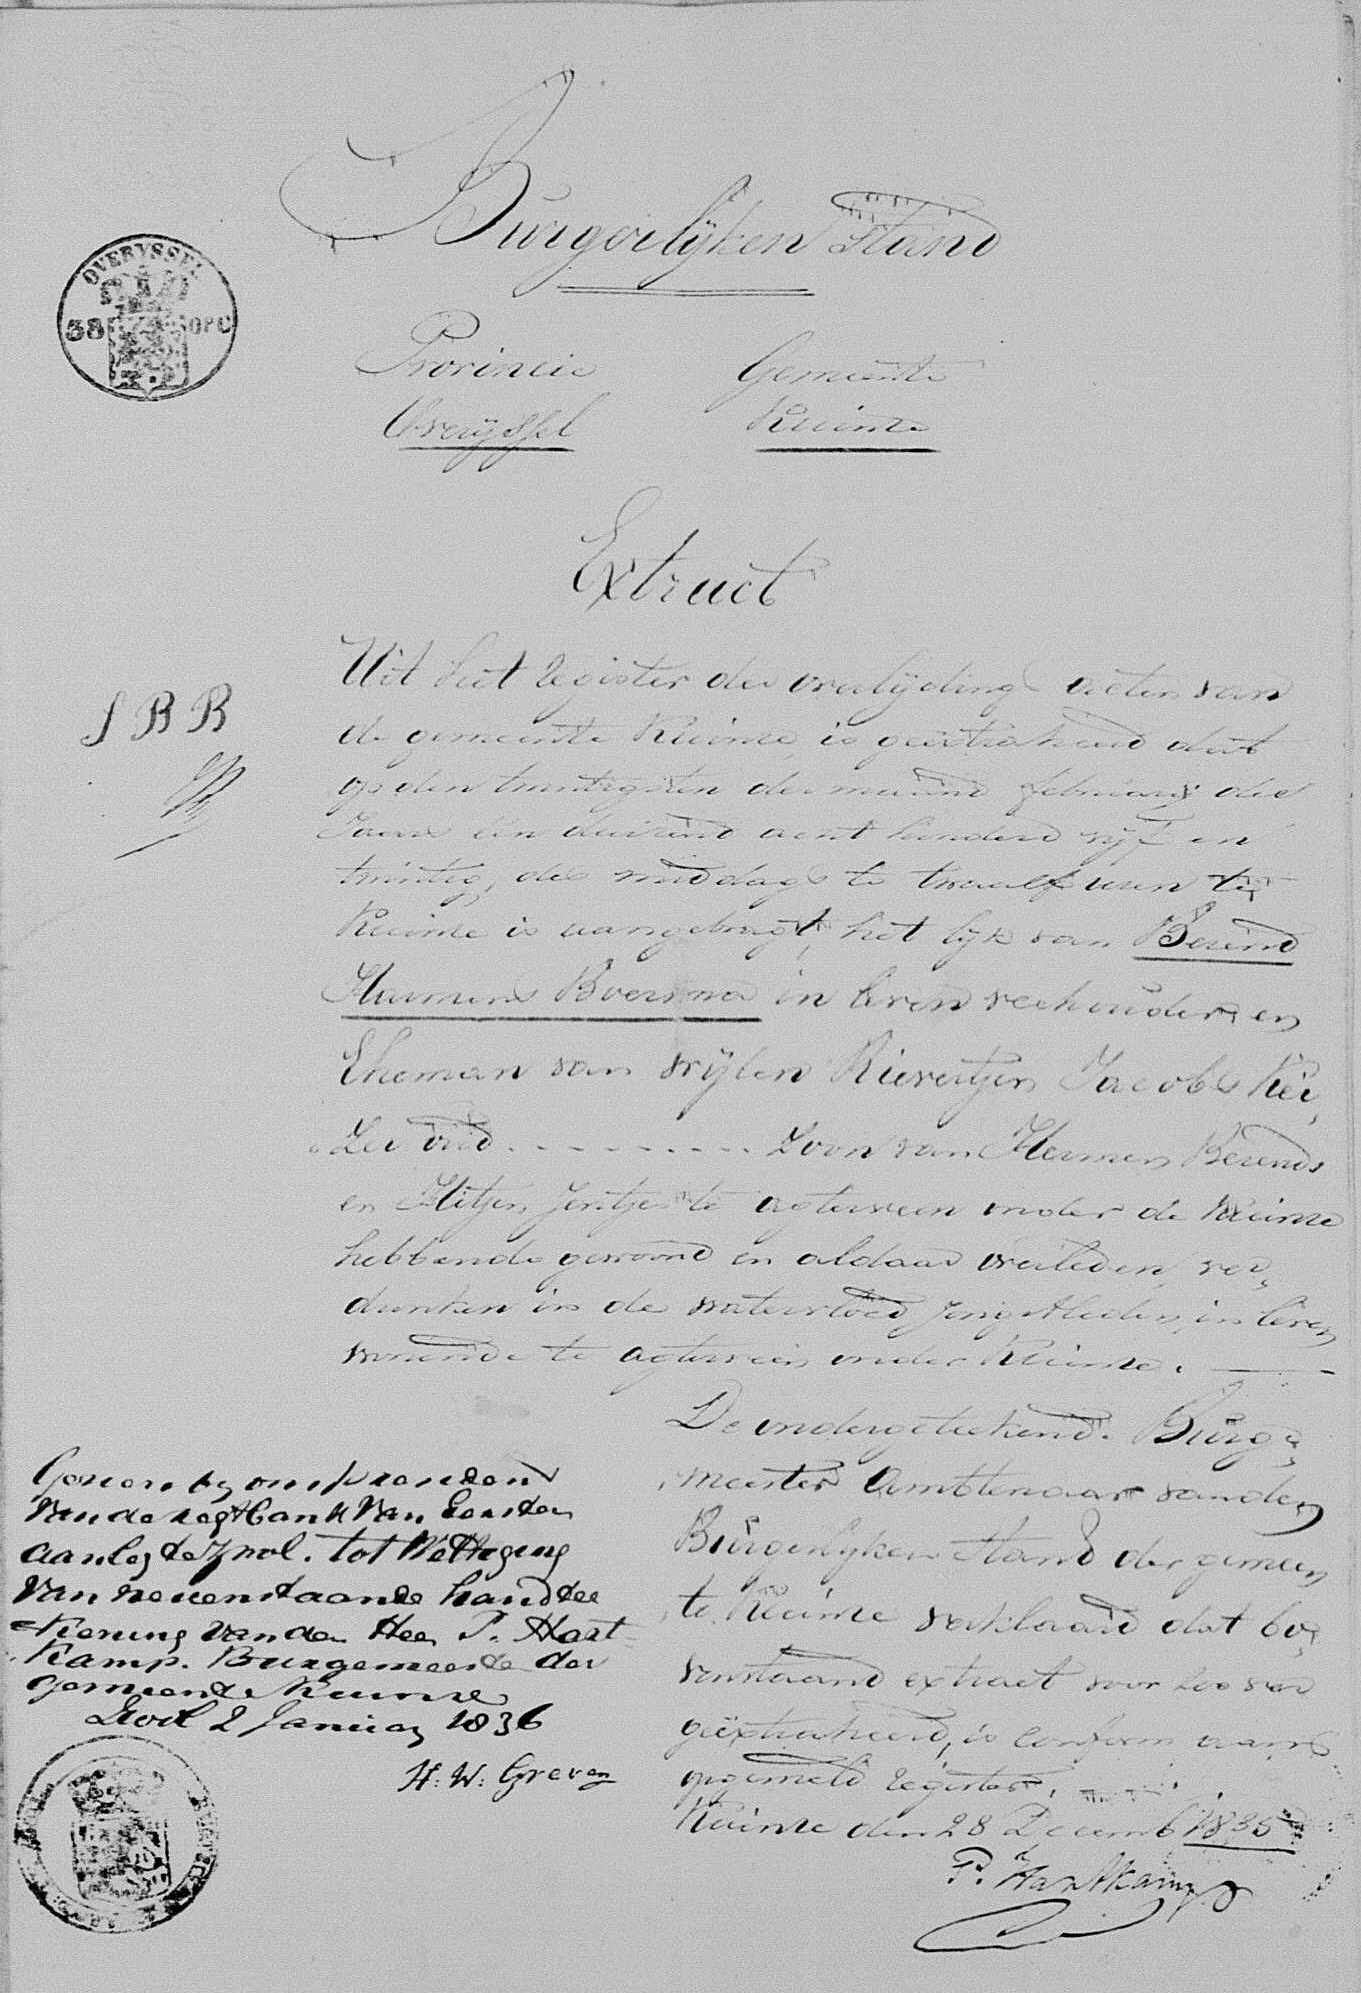 Burgerlijken Stand
OVERYSSEL
38 OPC
Provincie Gemeente
Overijssel Kuinre
Extract
Uit het register der overlijding acten van
de gemeente Kuinre, is geextraheerd dat
op den twintigsten der maand februarij des
Jaars één duizend acht honderd vijf en
twintig, des middags te twaalf uren te
Kuinre is aangebragt, het lijk van Berend
Harmens Boersma in leven veehouder, en
Eheman van wijlen Rievertjen Jacobs Kei„
„zer oud - - - - - - - - - zoon van Harmen Berends
en Hitjen Jentjes te agterveen onder de Kuinre
hebbende gewoond en aldaar overleden, ver„
dunken in de watervloed jongstleden, in leven
wonende te agterveen onder Kuinre.
S B B
De ondergeteekende Burge„
„meester Ambtenaar van den
Burgerlijken Stand der gemeen„
„te Kuinre verklaard dat bo„
venstaand extract voor zoo ver
geëxtraheerd, is conform aan
opgemeld register.
Kuinre den 28 Decemb 1835
P. Hartkamp
Gezien by ons president
van de regtbank van Eersten
aanleg te Zwol. tot Wettiging
van nevenstaande handtee
=kening van den Heer P. Hart=
kamp. Burgemeester der
Gemeente Kuinre
Zwol 2 Januarij 1836
H: W: Greven